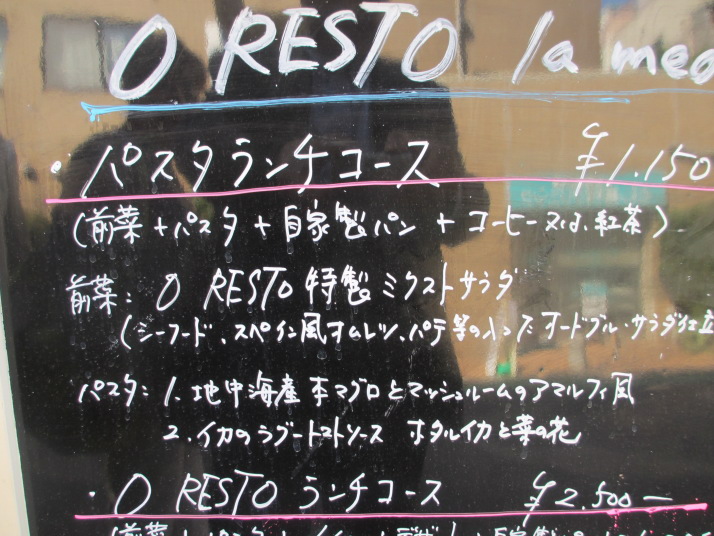 O RESTO la med
・パスタランチコース ¥1.150
(前菜+パスタ+自家製パン+コーヒー又は、紅茶)
前菜: O RESTO 特製ミクストサラダ
(シーフード、スペイン風オムレツ、パテ等の入ったオードブル・サラダ仕立
パスタ: 1. 地中海産本マグロとマッシュルームのアマルフィ風
2. イカのラグートマトソース ホタルイカと菜の花
・O RESTO ランチコース ¥2.500-